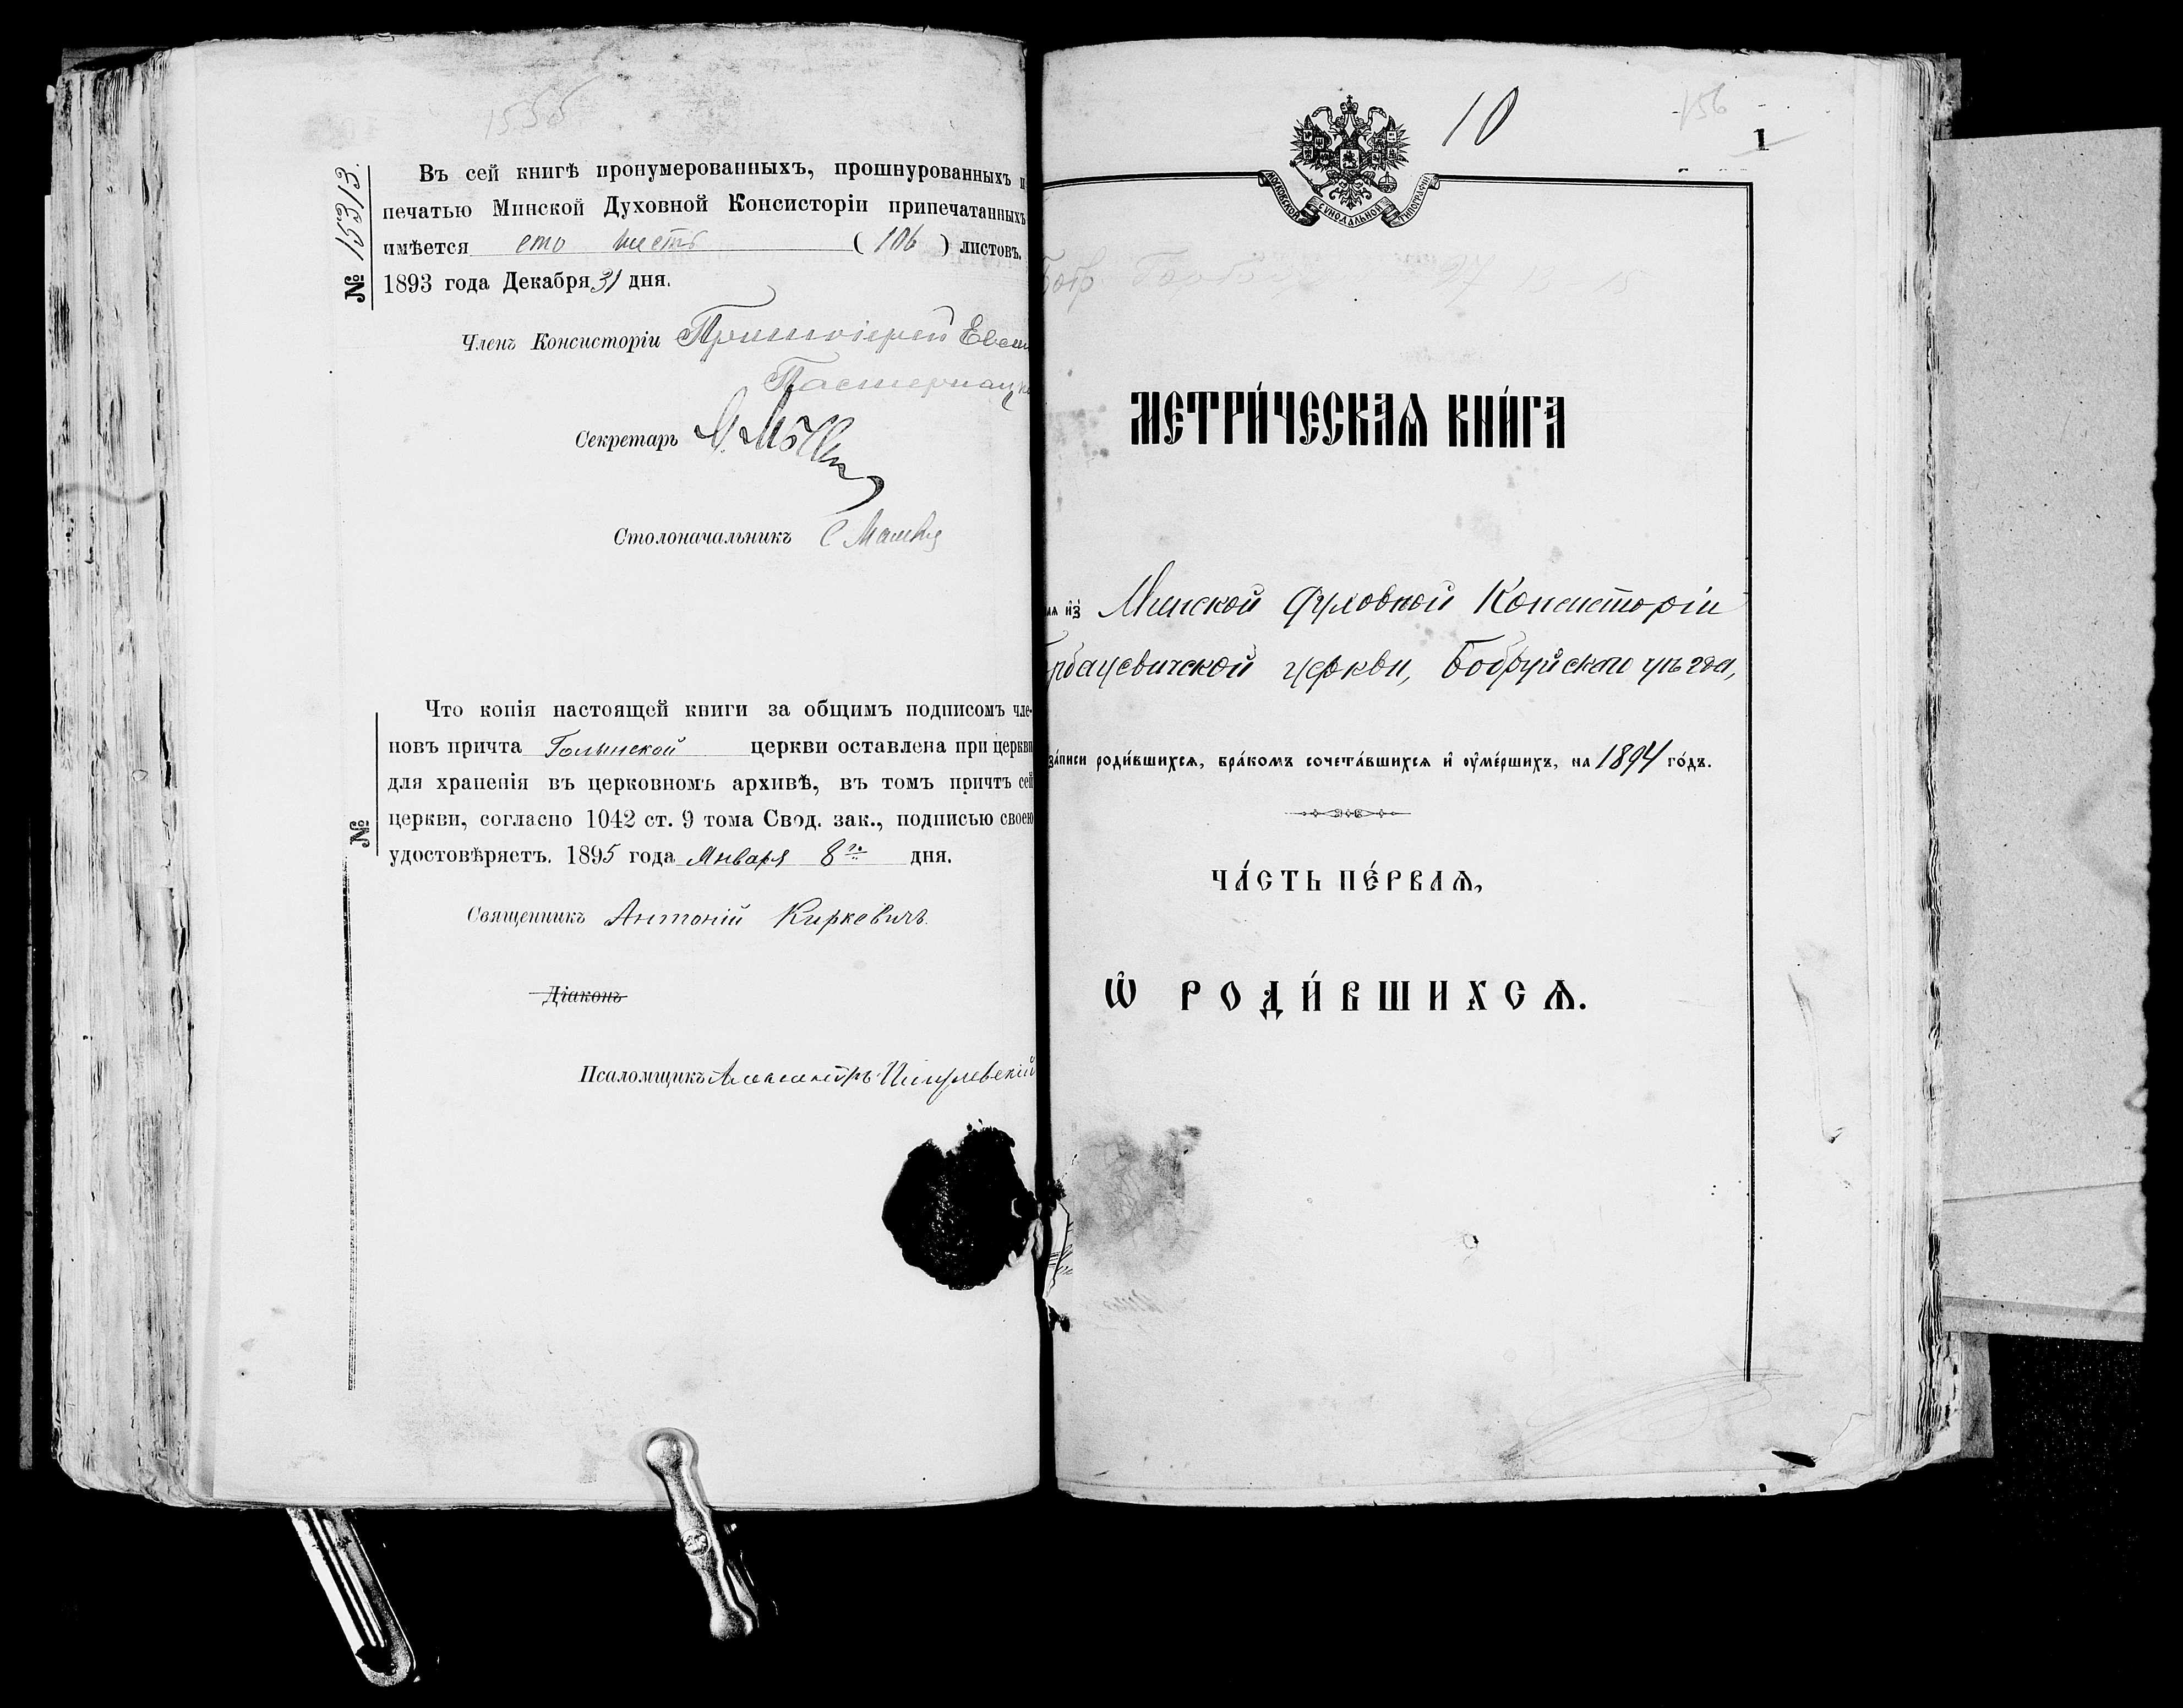 155б
№ 15313.
Въ сей книгѣ пронумерованныхъ, прошнурованныхъ и
печатью Минской Духовной Консисторіи припечатанныхъ
имѣется сто шесть (106) листовъ.
1893 года Декабря 31 дня.
Членъ Консисторіи Протоіерей
Секретарь
Столоначальникъ С
№
Что копія настоящей книги за общимъ подписомъ чле-
новъ причта Голынской церкви оставлена при церкви
для храненія въ церковномъ архивѣ, въ томъ причтъ сей
церкви, согласно 1042 ст. 9 тома Свод. зак., подписью своею
удостовѣряетъ. 1895 года Января 8го дня.
Священникъ Антоній Киркевичъ.
Діаконъ
Псаломщикъ Александръ
10
156
1
МОСКОВСКОЙ СУНОДАЛЬНОЙ ТИПОГРАФІИ
МЕТРИ́ЧЕСКАѦ КНИ́ГА
из̾ Минской Духовной Консисторіи
рбацевичской церкви, Бобруйскаго уѣзда,
за́писи роди́вшихсѧ, бра́комъ сочета́вшихсѧ и҆ ᲂу҆ме́ршихъ, на 1894 го́дъ.
ЧА́СТЬ ПЕ́РВАѦ,
Ѡ҆ РОДИ́ВШИХСѦ.